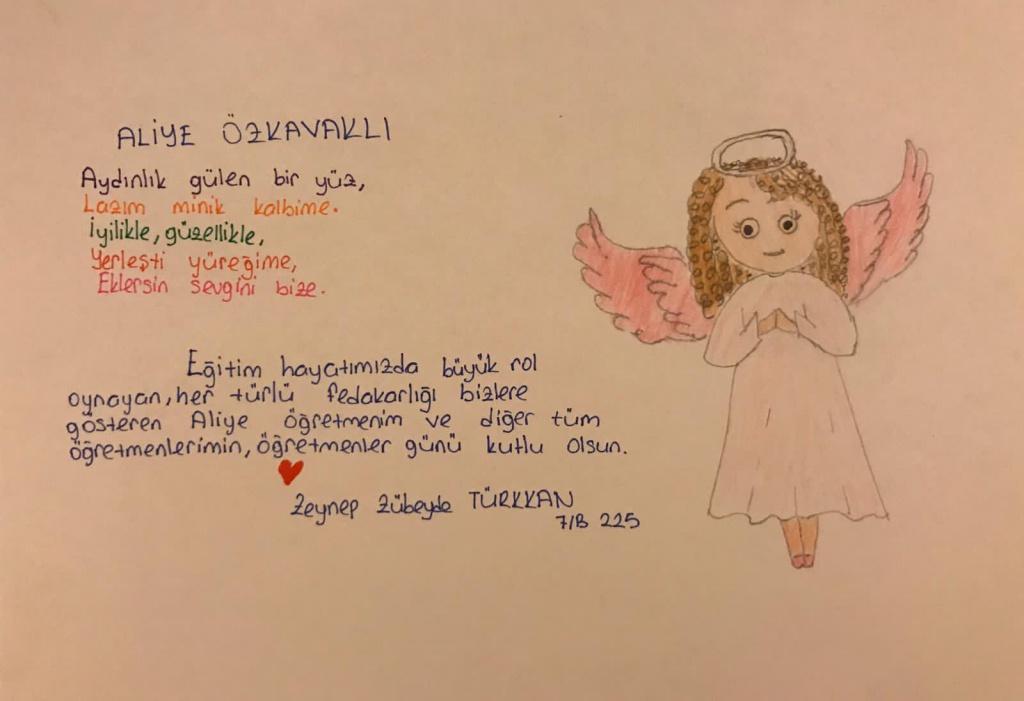 ALİYE ÖZKAVAKLI
Aydınlık gülen bir yüz,
Lazım minik kalbime.
İyilikle, güzellikle,
Yerleşti yüreğime,
Eklersin sevgini bize.
Eğitim hayatımızda büyük rol
oynayan, her türlü fedakarlığı bizlere
gösteren Aliye öğretmenim ve diğer tüm
öğretmenlerimin, öğretmenler günü kutlu olsun.
Zeynep Zübeyde TÜRKKAN
7/B 225